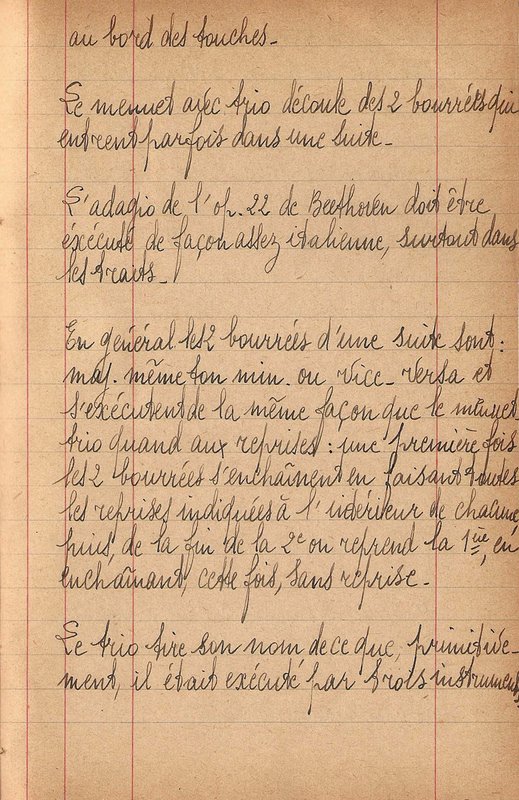 au bord des touches.
Le menuet avec trio découle des 2 bourrées qui
entrent parfois dans une suite.
L'adagio de l'op. 22 de Beethoven doit être
éxécuté de façon assez italienne, surtout dans
les traits.
En général les 2 bourrées d'une suite sont :
maj. même ton min. ou vice-versa et
s'exécutent de la même façon que le menuet
trio quand aux reprises : une première fois
les 2 bourrées s'enchaînent en faisant toutes
les reprises indiquées à l'intérieur de chacune
puis, de la fin de la 2e on reprend la 1ère, en
enchaînant, cette fois, sans reprise.
Le trio tire son nom de ce que, primitive-
ment, il était exécuté par trois instruments